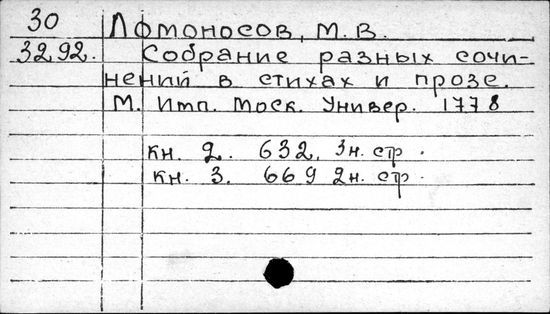 30 Ломоносов, М. В.
3292. Собрание разных сочи-
нений в стихах и прозе.
М. Имп. Моск. Универ. 1778
кн. 2. 632, 3н. стр.
кн. 3. 669 2н. стр.